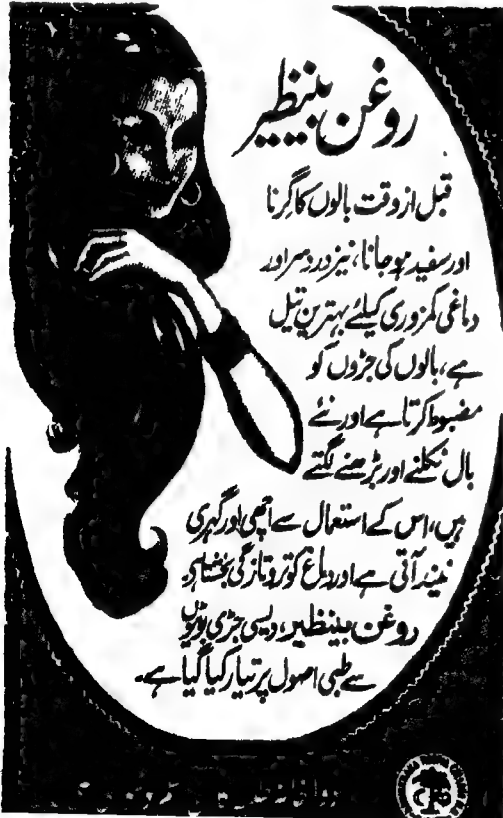 روغن بینظیر
قبل از وقت بالوں کا گرنا
اور سفید ہو جانا، نیز درد سر اور
دماغی کمزوری کیلئے بہترین تیل
ہے، بالوں کی جڑوں کو
مضبوط کرتا ہے اور نئے
بال نکلنے اور بڑھنے لگتے
ہیں، اس کے استعمال سے اچھی اور گہری
نیند آتی ہے اور دماغ کو تر و تازگی بخشتا ہے۔
روغن بینظیر، دیسی جڑی بوٹیوں
سے طبی اصول پر تیار کیا گیا ہے۔